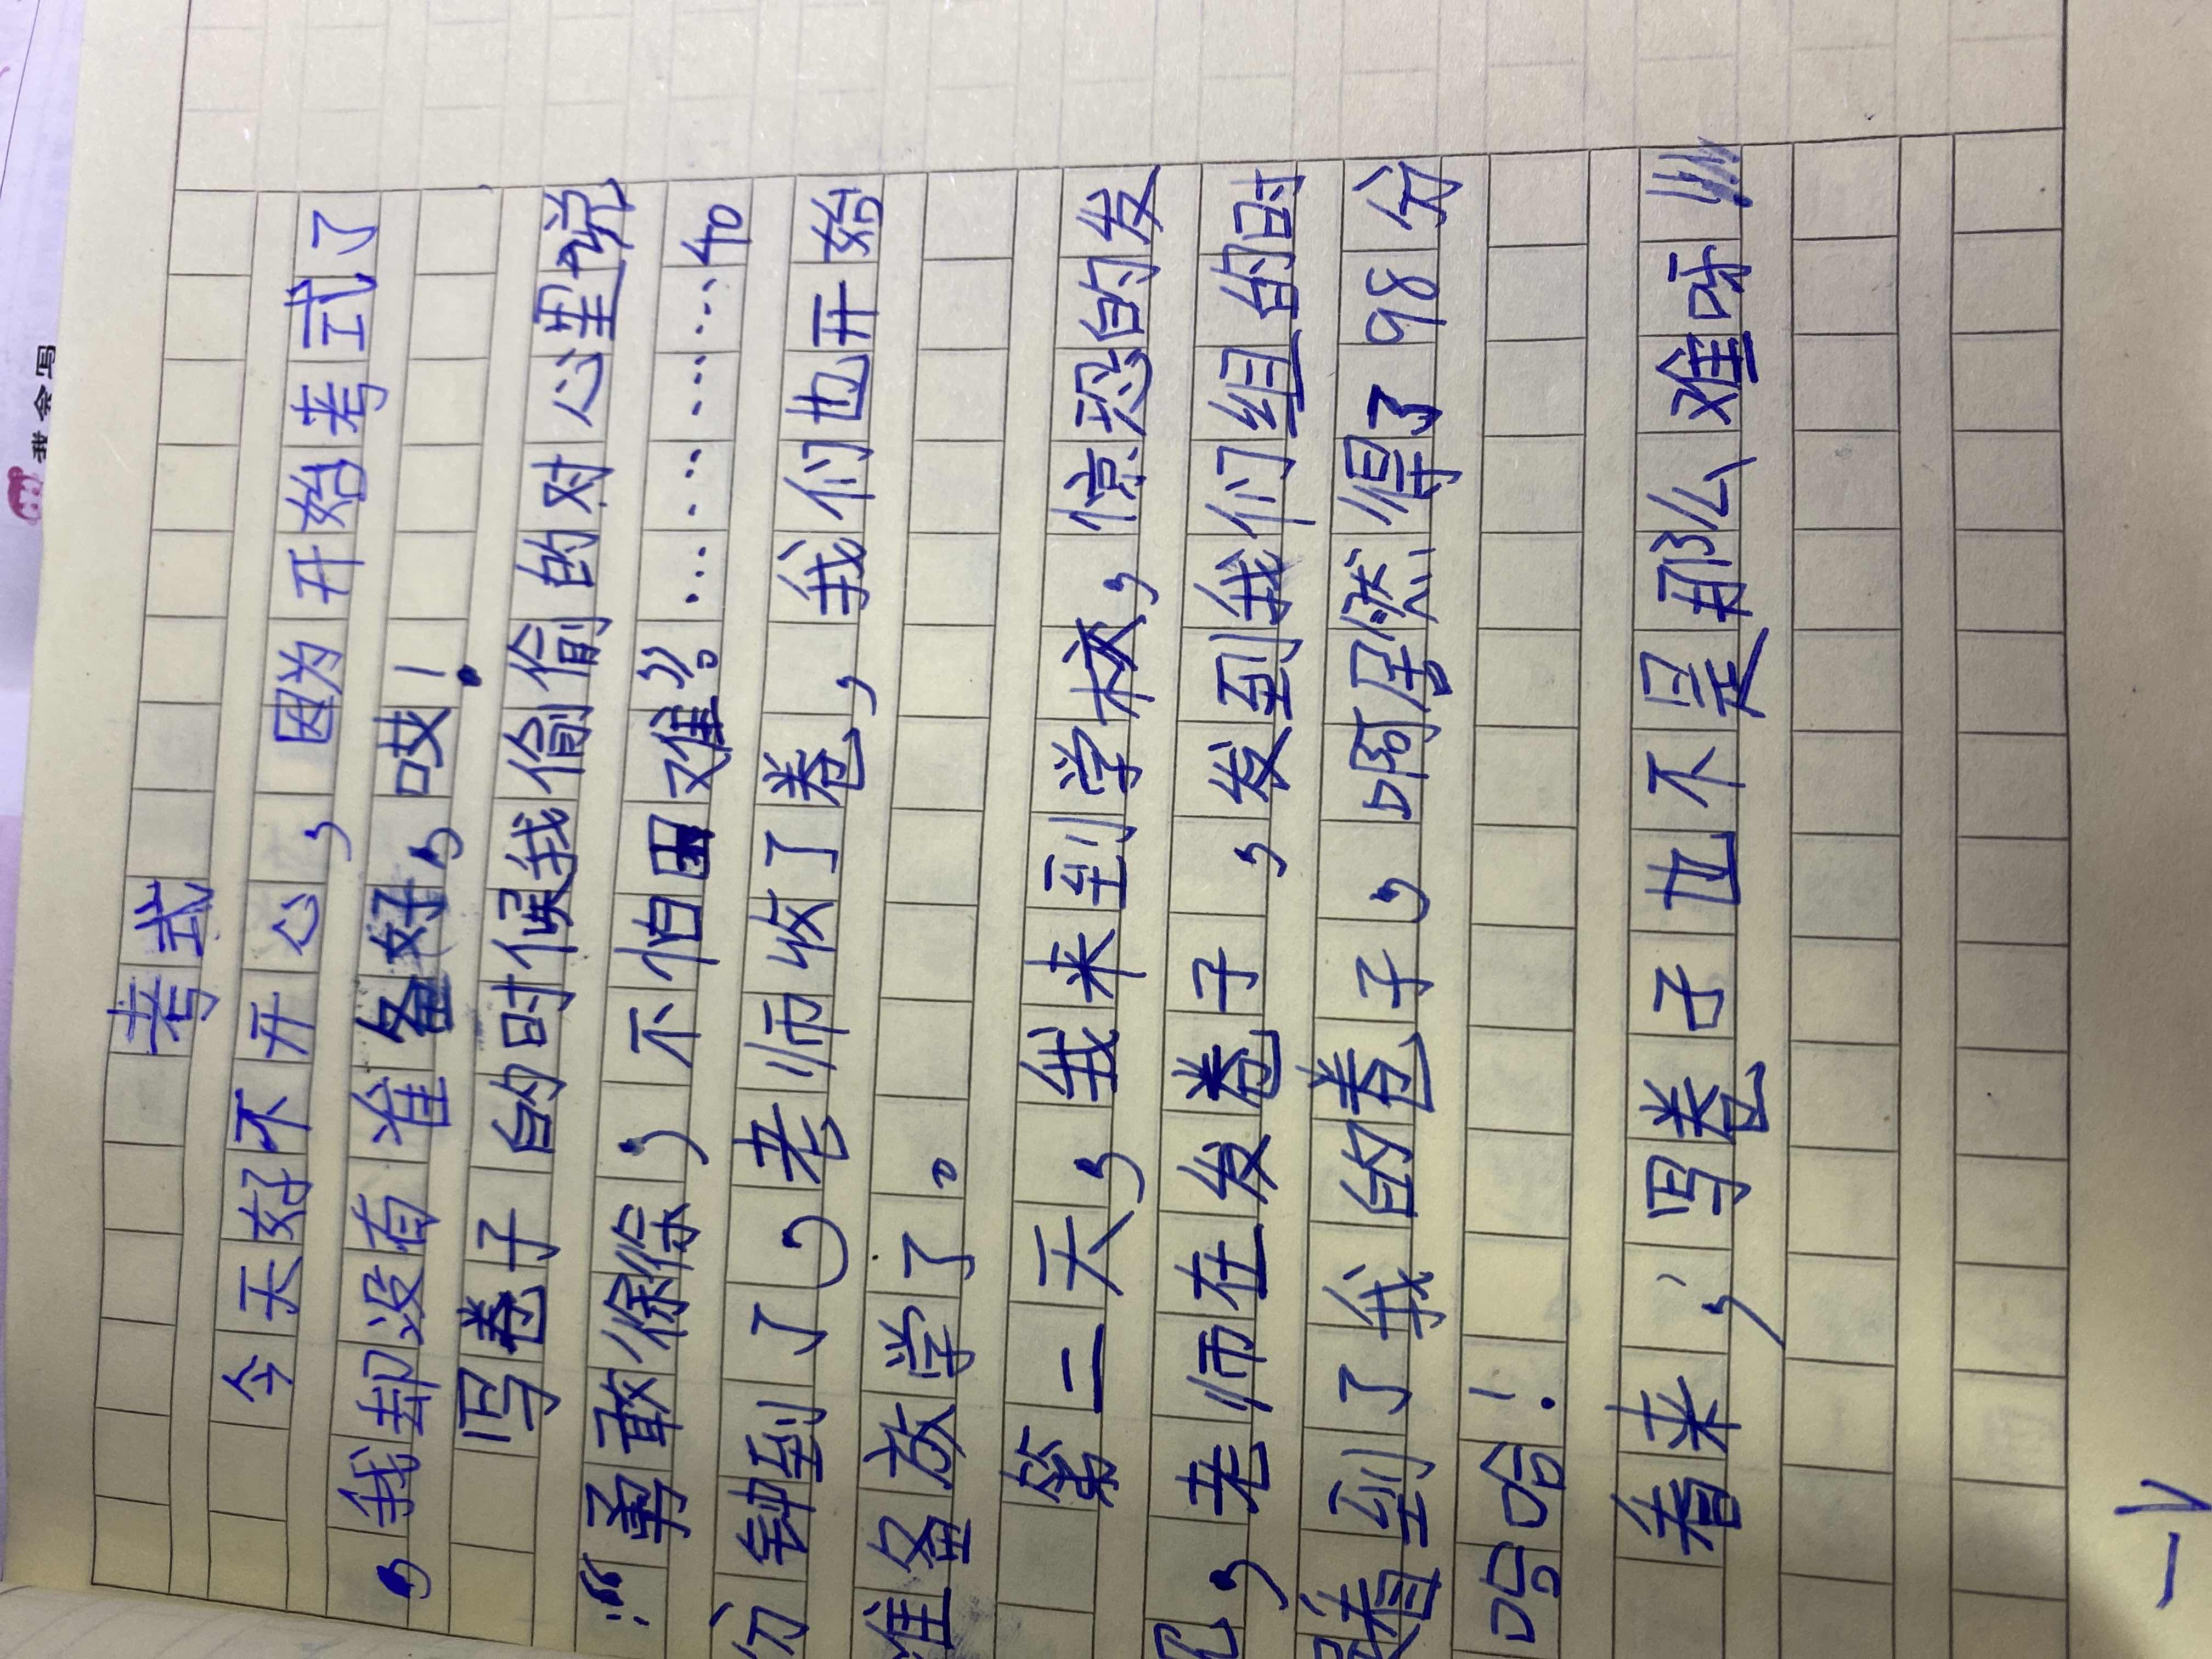 我会写
考式
今天好不开心，因为开始考式了
，我却没有准备好，哎！
写卷子的时候我偷偷的对心里说
：“勇敢徐徐，不怕困难”。………………40
分钟到了，老师收了卷，我们也开始
准备放学了。
第二天，我来到学校，惊恐的发
见，老师在发卷子，发到我们组的时
看到了我的卷子，啊居然得了98分
哈哈！
看来，写卷子也不是那么难呀!!!